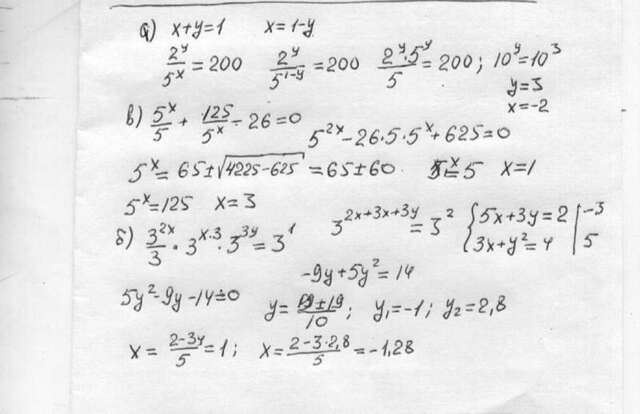 а) x+y=1 x=1-y
2^y/5^x=200 2^y/5^(1-y)=200 2^y·5^y/5=200; 10^y=10^3
y=3
x=-2
в) 5^x/5 + 125/5^x - 26=0
5^(2x)-26·5·5^x+625=0
5^x=65±√(4225-625)=65±60 5^x=5 x=1
5^x=125 x=3
б) 3^(2x)/3 · 3^(x·3) · 3^(3y)=3^1 3^(2x+3x+3y)=3^2 {5x+3y=2 |-3
{3x+y^2=4 | 5
-9y+5y^2=14
5y^2-9y-14=0 y=(9±19)/10; y₁=-1; y₂=2,8
x=(2-3y)/5=1; x=(2-3·2,8)/5=-1,28